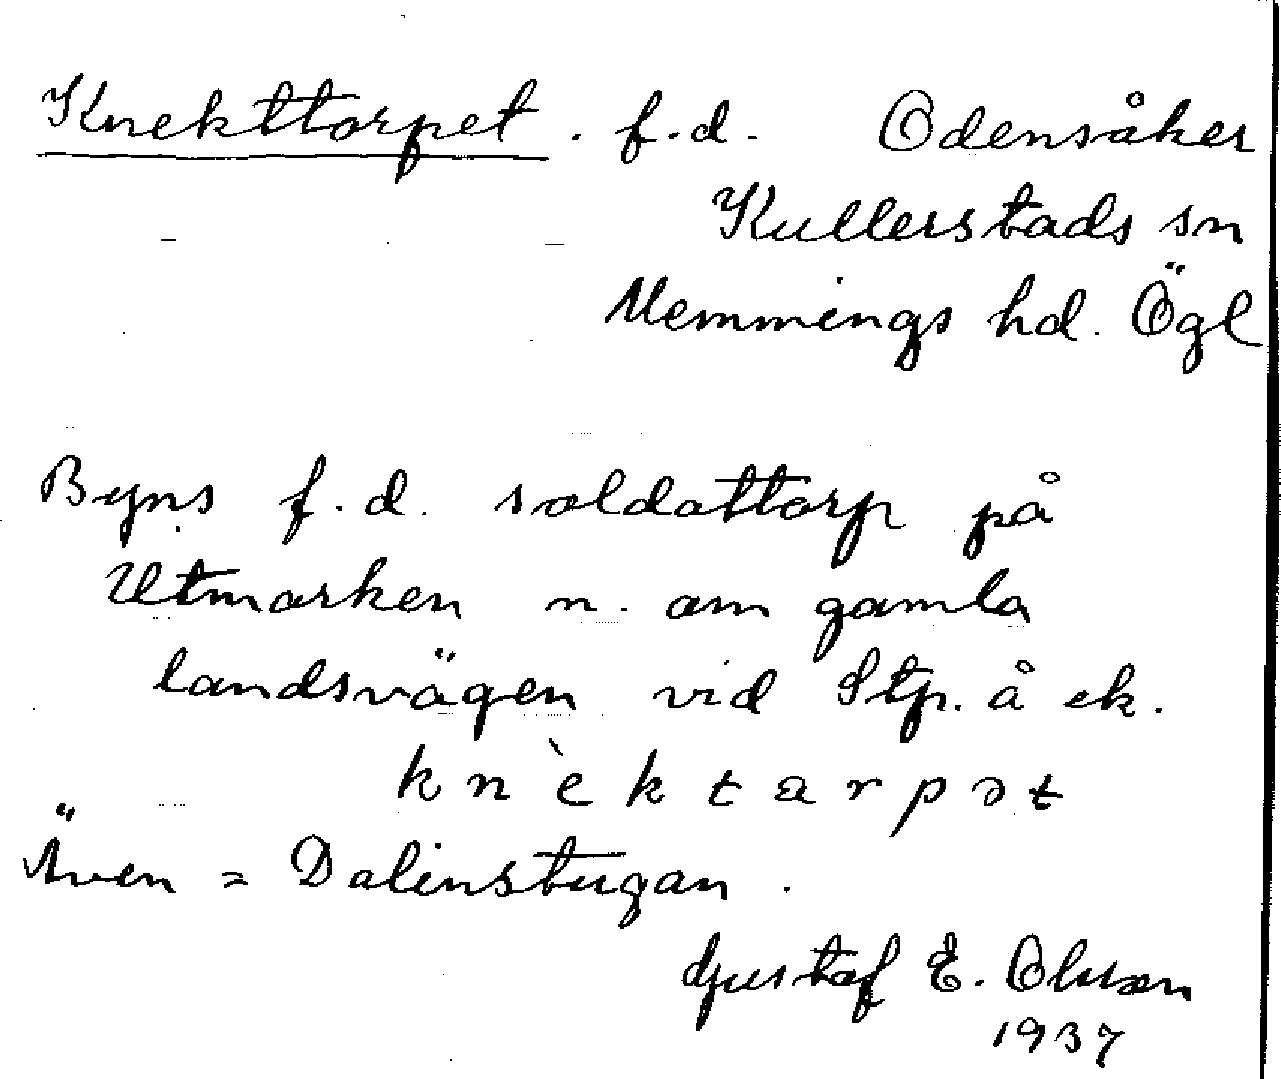 Knekttorpet. f.d. Odensåker
Kullerstads sn
Memmings hd. Ögl
Byns f.d. soldattorp på
Utmarken n. om gamla
landsvägen vid Stp. å ek.
knὲktarpət
Även = Dalinstugan.
Gustaf E. Olsson
1937